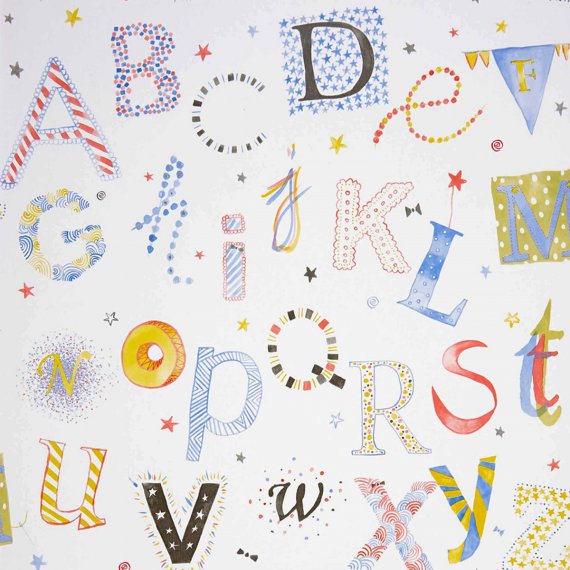 A B C D e F
G h i J K L M
N o p Q R S t
u V w X y Z